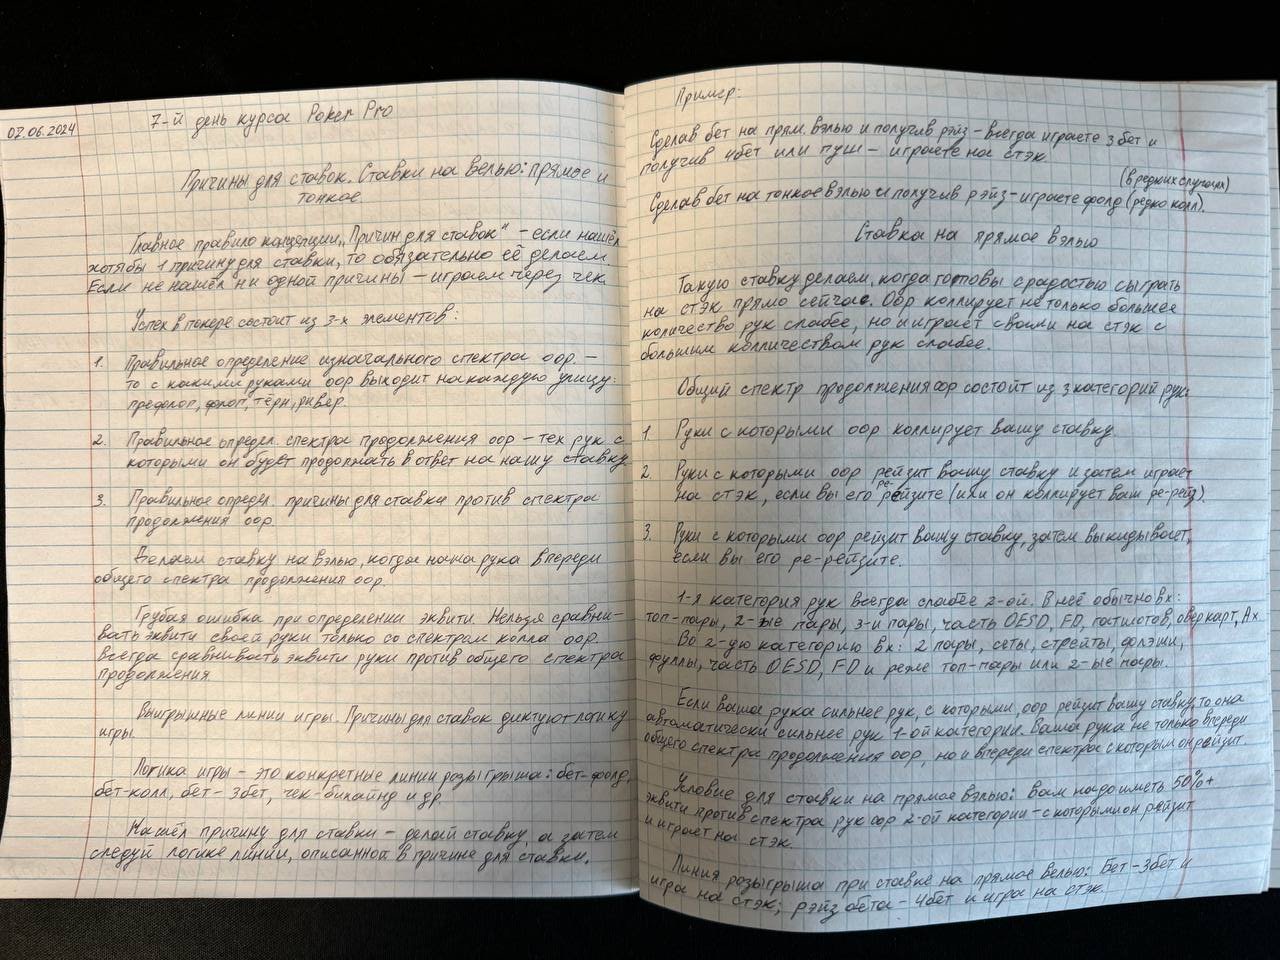 07.06.2024
7-й день курса Poker Pro
Причины для ставок. Ставки на велью: прямое и
тонкое.
Главное правило концепции „Причин для ставок" – если нашёл
хотя бы 1 причину для ставки, то обязательно её делаем.
Если не нашёл ни одной причины – играем через чек.
Успех в покере состоит из 3-х элементов:
1. Правильное определение изначального спектра опр. –
то с какими руками опр выходит на каждую улицу:
префлоп, флоп, тёрн, ривер.
2. Правильное определ. спектра продолжения опр – тех рук с
которыми он будет продолжать в ответ на нашу ставку.
3. Правильное определ. причины для ставки против спектра
продолжения опр.
Делаем ставку на вэлью, когда наша рука впереди
общего спектра продолжения опр.
Грубая ошибка при определении эквити. Нельзя сравни-
вать эквити своей руки только со спектром колла опр.
Всегда сравнивать эквити руки против общего спектра
продолжения
Выигрышные линии игры. Причины для ставок диктуют логику
игры.
Логика игры – это конкретные линии розыгрыша: бет-фолд,
бет-колл, бет-3бет, чек-бихайнд и др.
Нашёл причину для ставки – делай ставку, а затем
следуй логике линии, описанной в причине для ставки.
Пример:
Сделав бет на прям. вэлью и получив рэйз – всегда играете 3бет и
получив 4бет или пуш – играете на стэк.
(в редких случаях)
Сделав бет на тонкое вэлью и получив рэйз – играете фолд (редко колл).
Ставка на прямое вэлью
Такую ставку делаем, когда готовы с радостью сыграть
на стэк прямо сейчас. Опр коллирует не только большее
количество рук слабее, но и играет с вами на стэк с
большим колличеством рук слабее.
Общий спектр продолжения опр состоит из 3 категорий рук:
1. Руки с которыми опр коллирует вашу ставку.
2. Руки с которыми опр рейзит вашу ставку и затем играет
на стэк, если вы его ре-рейзите (или он коллирует ваш ре-рейз)
3. Руки с которыми опр рейзит вашу ставку, затем выкидывает,
если вы его ре-рейзите.
1-я категория рук всегда слабее 2-ой. В неё обычно вх:
топ-пары, 2-ые пары, 3-и пары, часть OESD, FD, гатшотов, оверкарт, Ax
Во 2-ую категорию вх: 2 пары, сеты, стрейты, флэши,
фуллы, часть OESD, FD и реже топ-пары или 2-ые пары.
Если ваша рука сильнее рук, с которыми, опр рейзит вашу ставку, то она
автоматически сильнее рук 1-ой категории. Ваша рука не только впереди
общего спектра продолжения опр, но и впереди спектра с которым он рейзит.
Условие для ставки на прямое вэлью: вам надо иметь 50%+
эквити против спектра рук опр 2-ой категории – с которыми он рейзит
и играет на стэк.
Линия розыгрыша при ставке на прямое велью: Бет-3бет и
игра на стэк; рэйз бета – 4бет и игра на стэк.